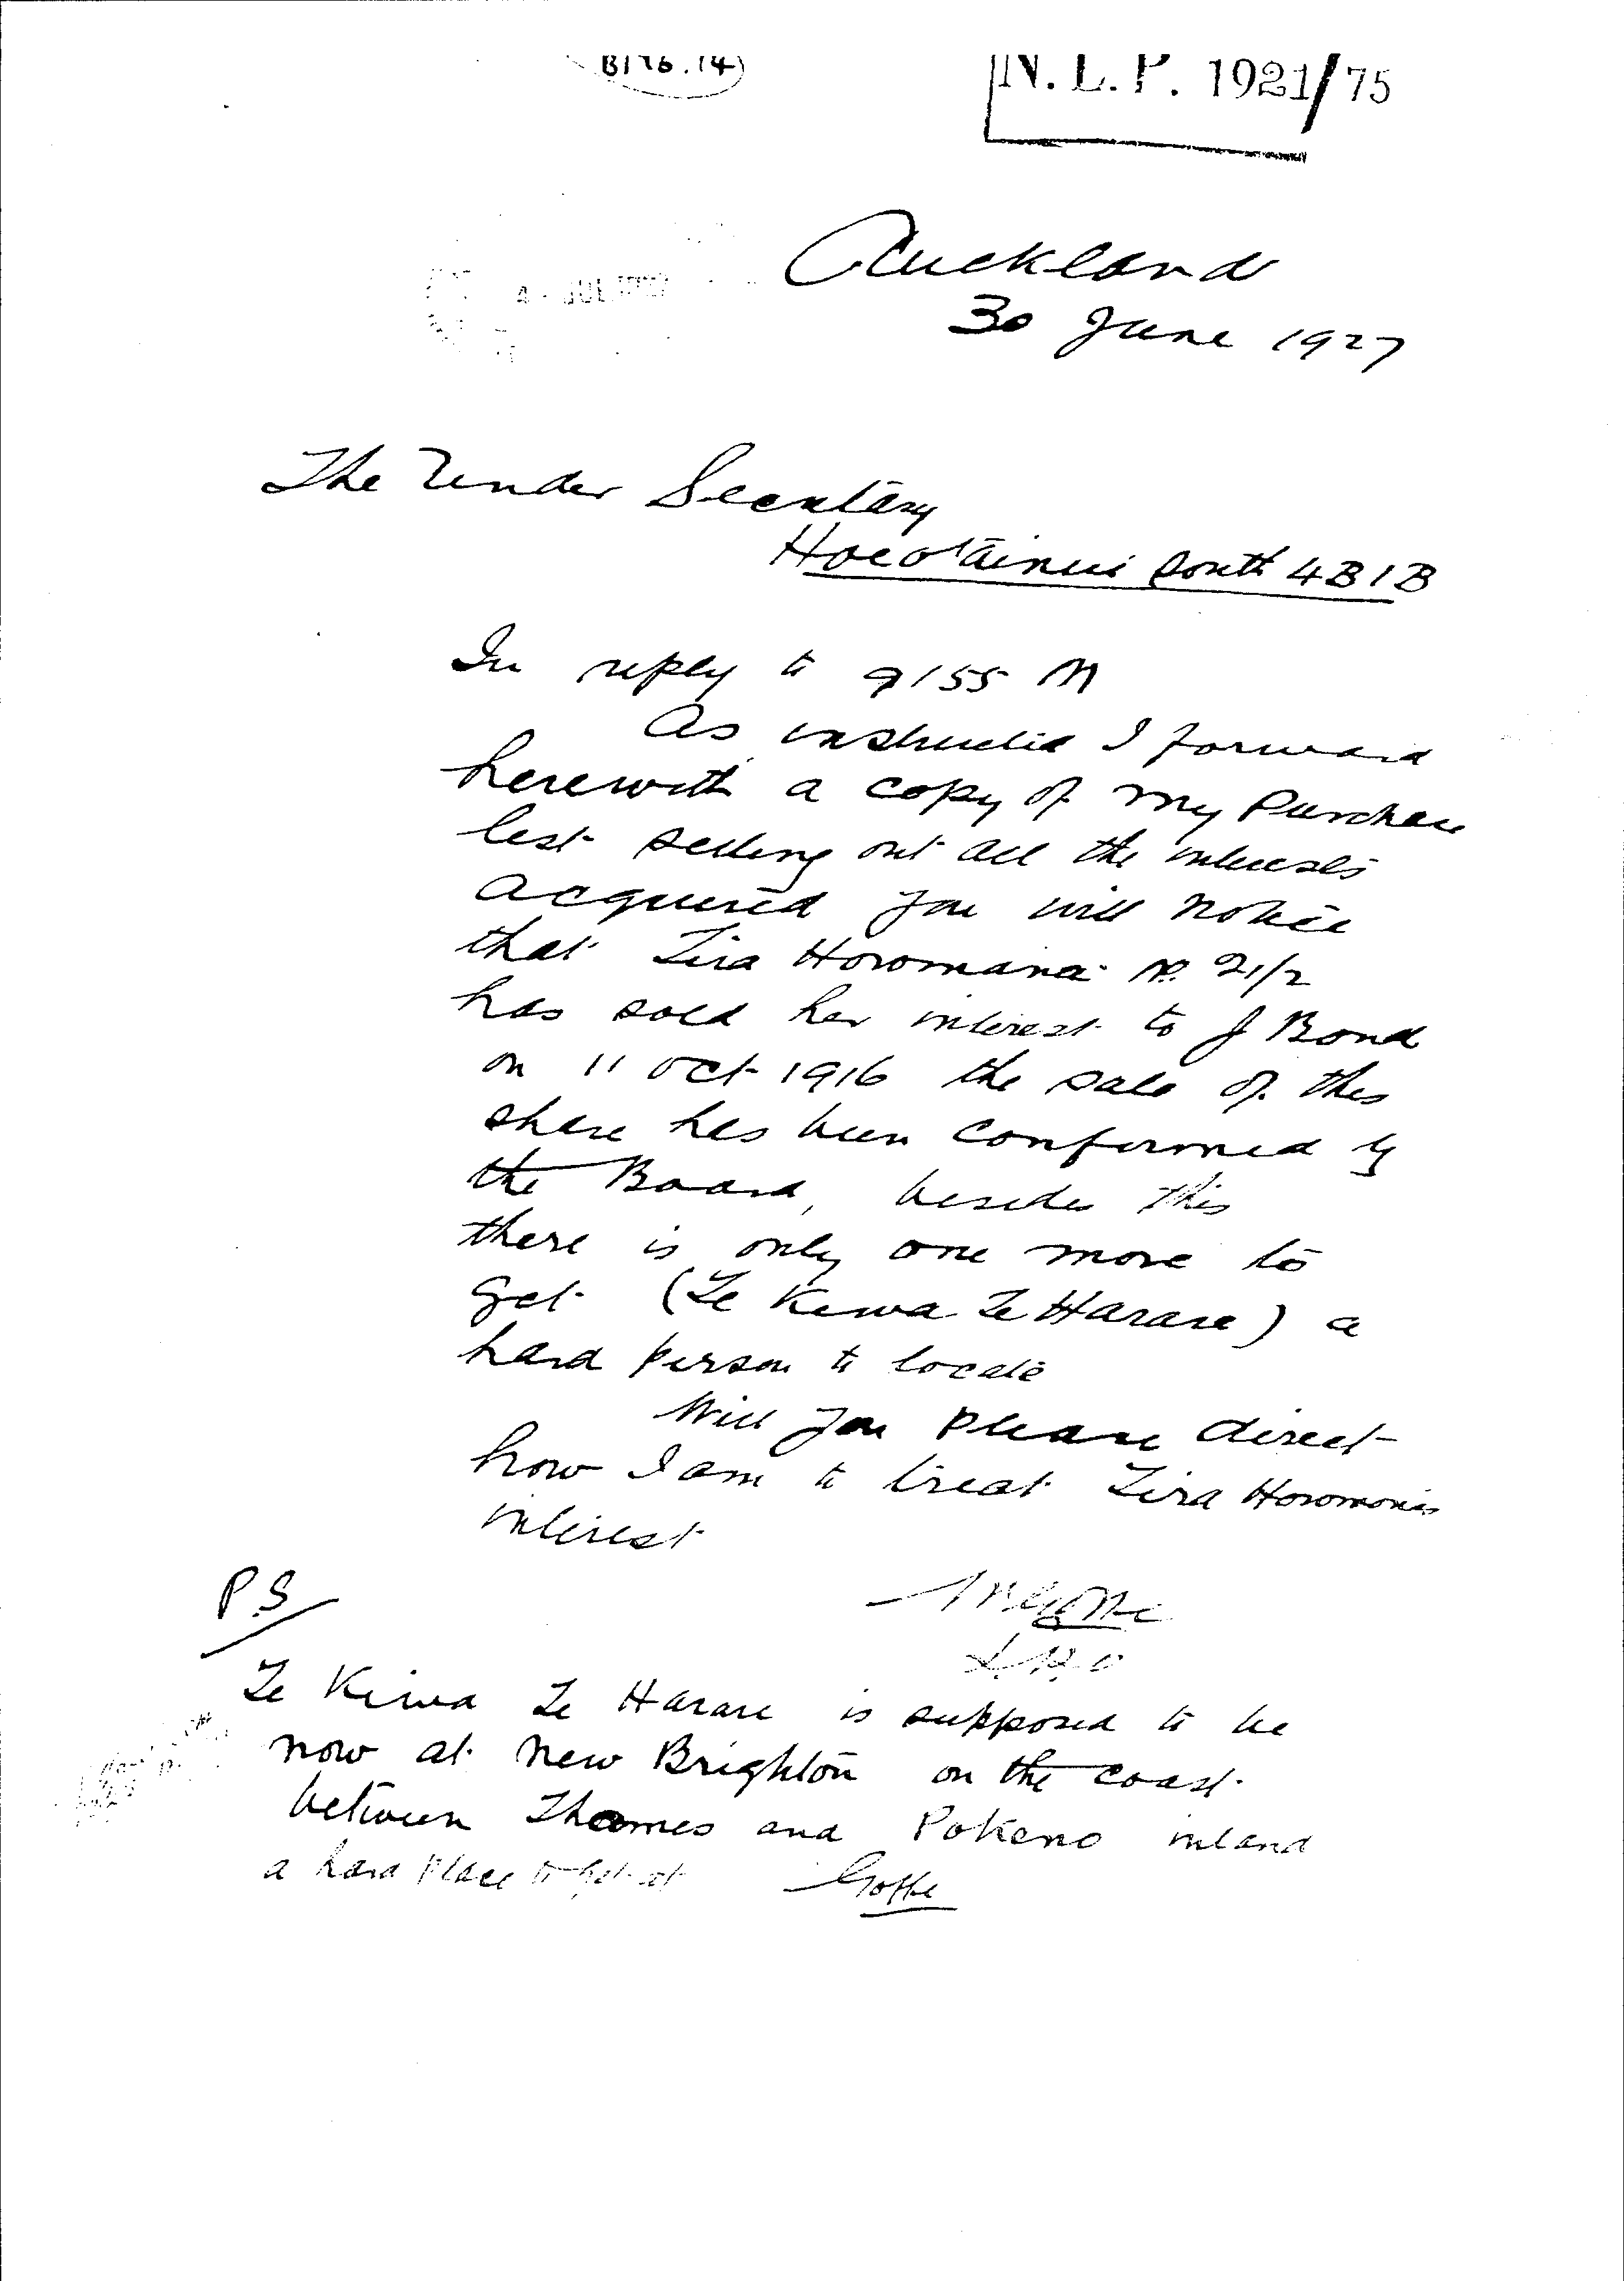 B196.(4)
N. L. P. 1921/75
Auckland
30 June 1927
4 - JUL 1927
The Under Secretary
Hoeotainui South 4B1B
In reply to 9155 M
As instructed I forward
herewith a copy of my Purchase
list setting out all the interests
acquired you will notice
that Tira Horomana No. 21/2
has sold her interest to J Bond
on 11 Oct 1916 the sale of this
share has been confirmed by
the Board, besides this
there is only one more to
get (Te Kiwa Te Harare) a
hard person to locate
Will you please direct
how I am to treat Tira Horomona's
interest
W H Goffe
L.P.O
P.S
Te Kiwa Te Harare is supposed to be
now at New Brighton on the coast
between Thames and Pokeno inland
a hard place to get at Goffe